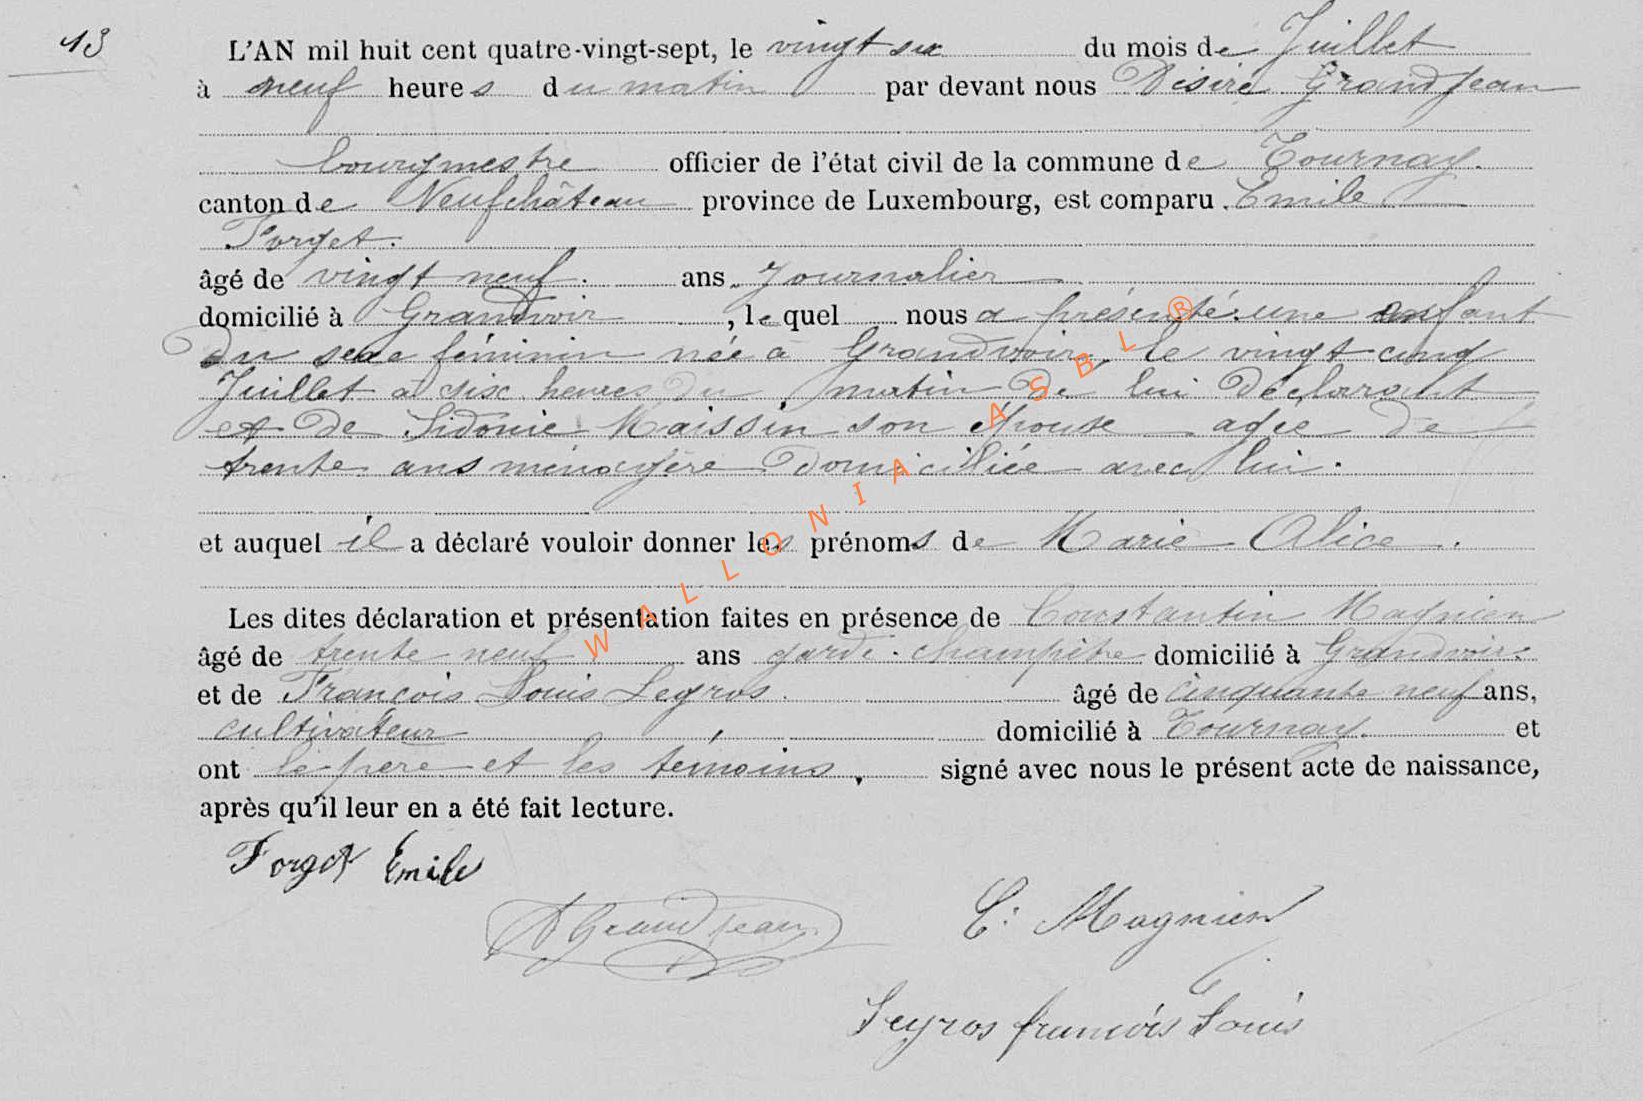 13
L'AN mil huit cent quatre-vingt-sept, le vingt six du mois de Juillet
à neuf heures du matin par devant nous Désiré Grandjean
bourgmestre officier de l'état civil de la commune de Tournay.
canton de Neufchâteau province de Luxembourg, est comparu Emile
Forget.
âgé de vingt neuf. ans, Journalier
domicilié à Grandvoir, lequel nous a présenté une enfant
du sexe féminin née à Grandvoir, le vingt cinq
Juillet à dix heures du matin de lui déclarant
et de Sidonie Maissin son épouse agée de
trente ans ménagère domiciliée avec lui.
et auquel il a déclaré vouloir donner les prénoms de Marie Alice.
Les dites déclaration et présentation faites en présence de Constantin Magnien
âgé de trente neuf ans garde-champêtre domicilié à Grandvoir
et de François Louis Legros. âgé de cinquante neuf ans,
cultivateur domicilié à Tournay. et
ont le père et les témoins, signé avec nous le présent acte de naissance,
après qu'il leur en a été fait lecture.
Forget Emile
D Grandjean
C. Magnien
Legros francois Louis
WALLONIA ASBL ®